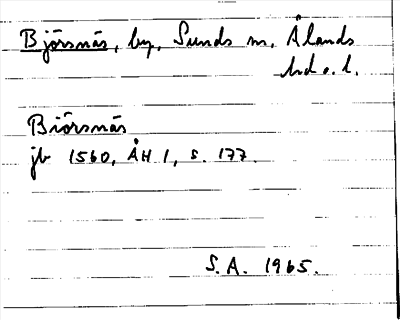 Björsnäs, by, Sunds sn, Ålands
hd o. l.
Biörsnäs
jb 1560, ÅH 1, s. 177.
S.A. 1965.